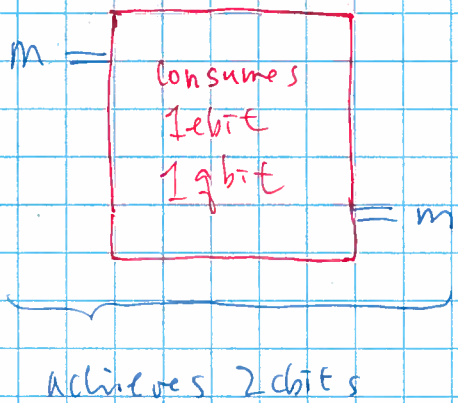 m =
consumes
1 ebit
1 qbit
= m
achieves 2 cbits